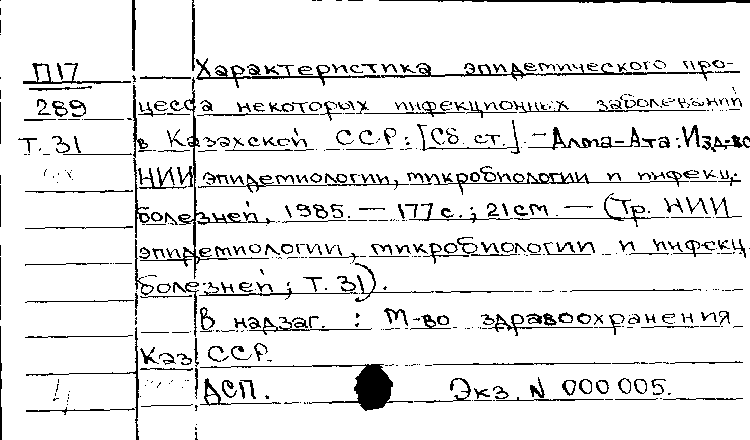 П17 Характеристика эпидемического про-
289 цесса некоторых инфекционных заболеваний
Т. 31 в Казахской ССР: [Сб. ст.]. - Алма-Ата: Изд-во
НИИ эпидемиологии, микробиологии и инфекц.
болезней, 1985. — 177 с.; 21 см. — (Тр. НИИ
эпидемиологии, микробиологии и инфекц.
болезней; Т. 31).
В надзаг. : М-во здравоохранения
Каз ССР.
4 ДСП. Экз. N 000 005.